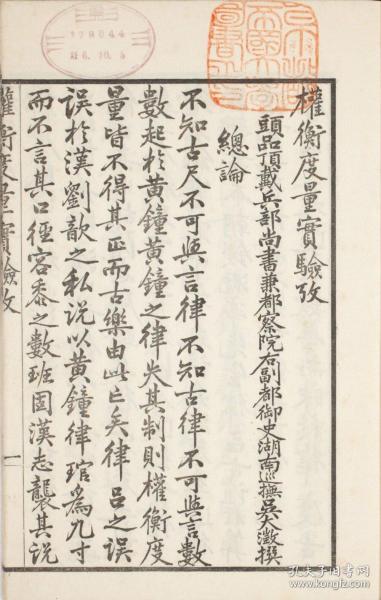 權衡度量實驗攷
頭品頂戴兵部尚書兼都察院右副都御史湖南巡撫吳大澂撰
總論
不知古尺不可與言律不知古律不可與言數
數起於黃鐘黃鐘之律失其制則權衡度
量皆不得其正而古樂由此亡矣律呂之誤
誤於漢劉歆之私說以黃鐘律琯爲九寸
而不言其口徑容黍之數班固漢志襲其說
權衡度量實驗攷
一
孔夫子旧书网